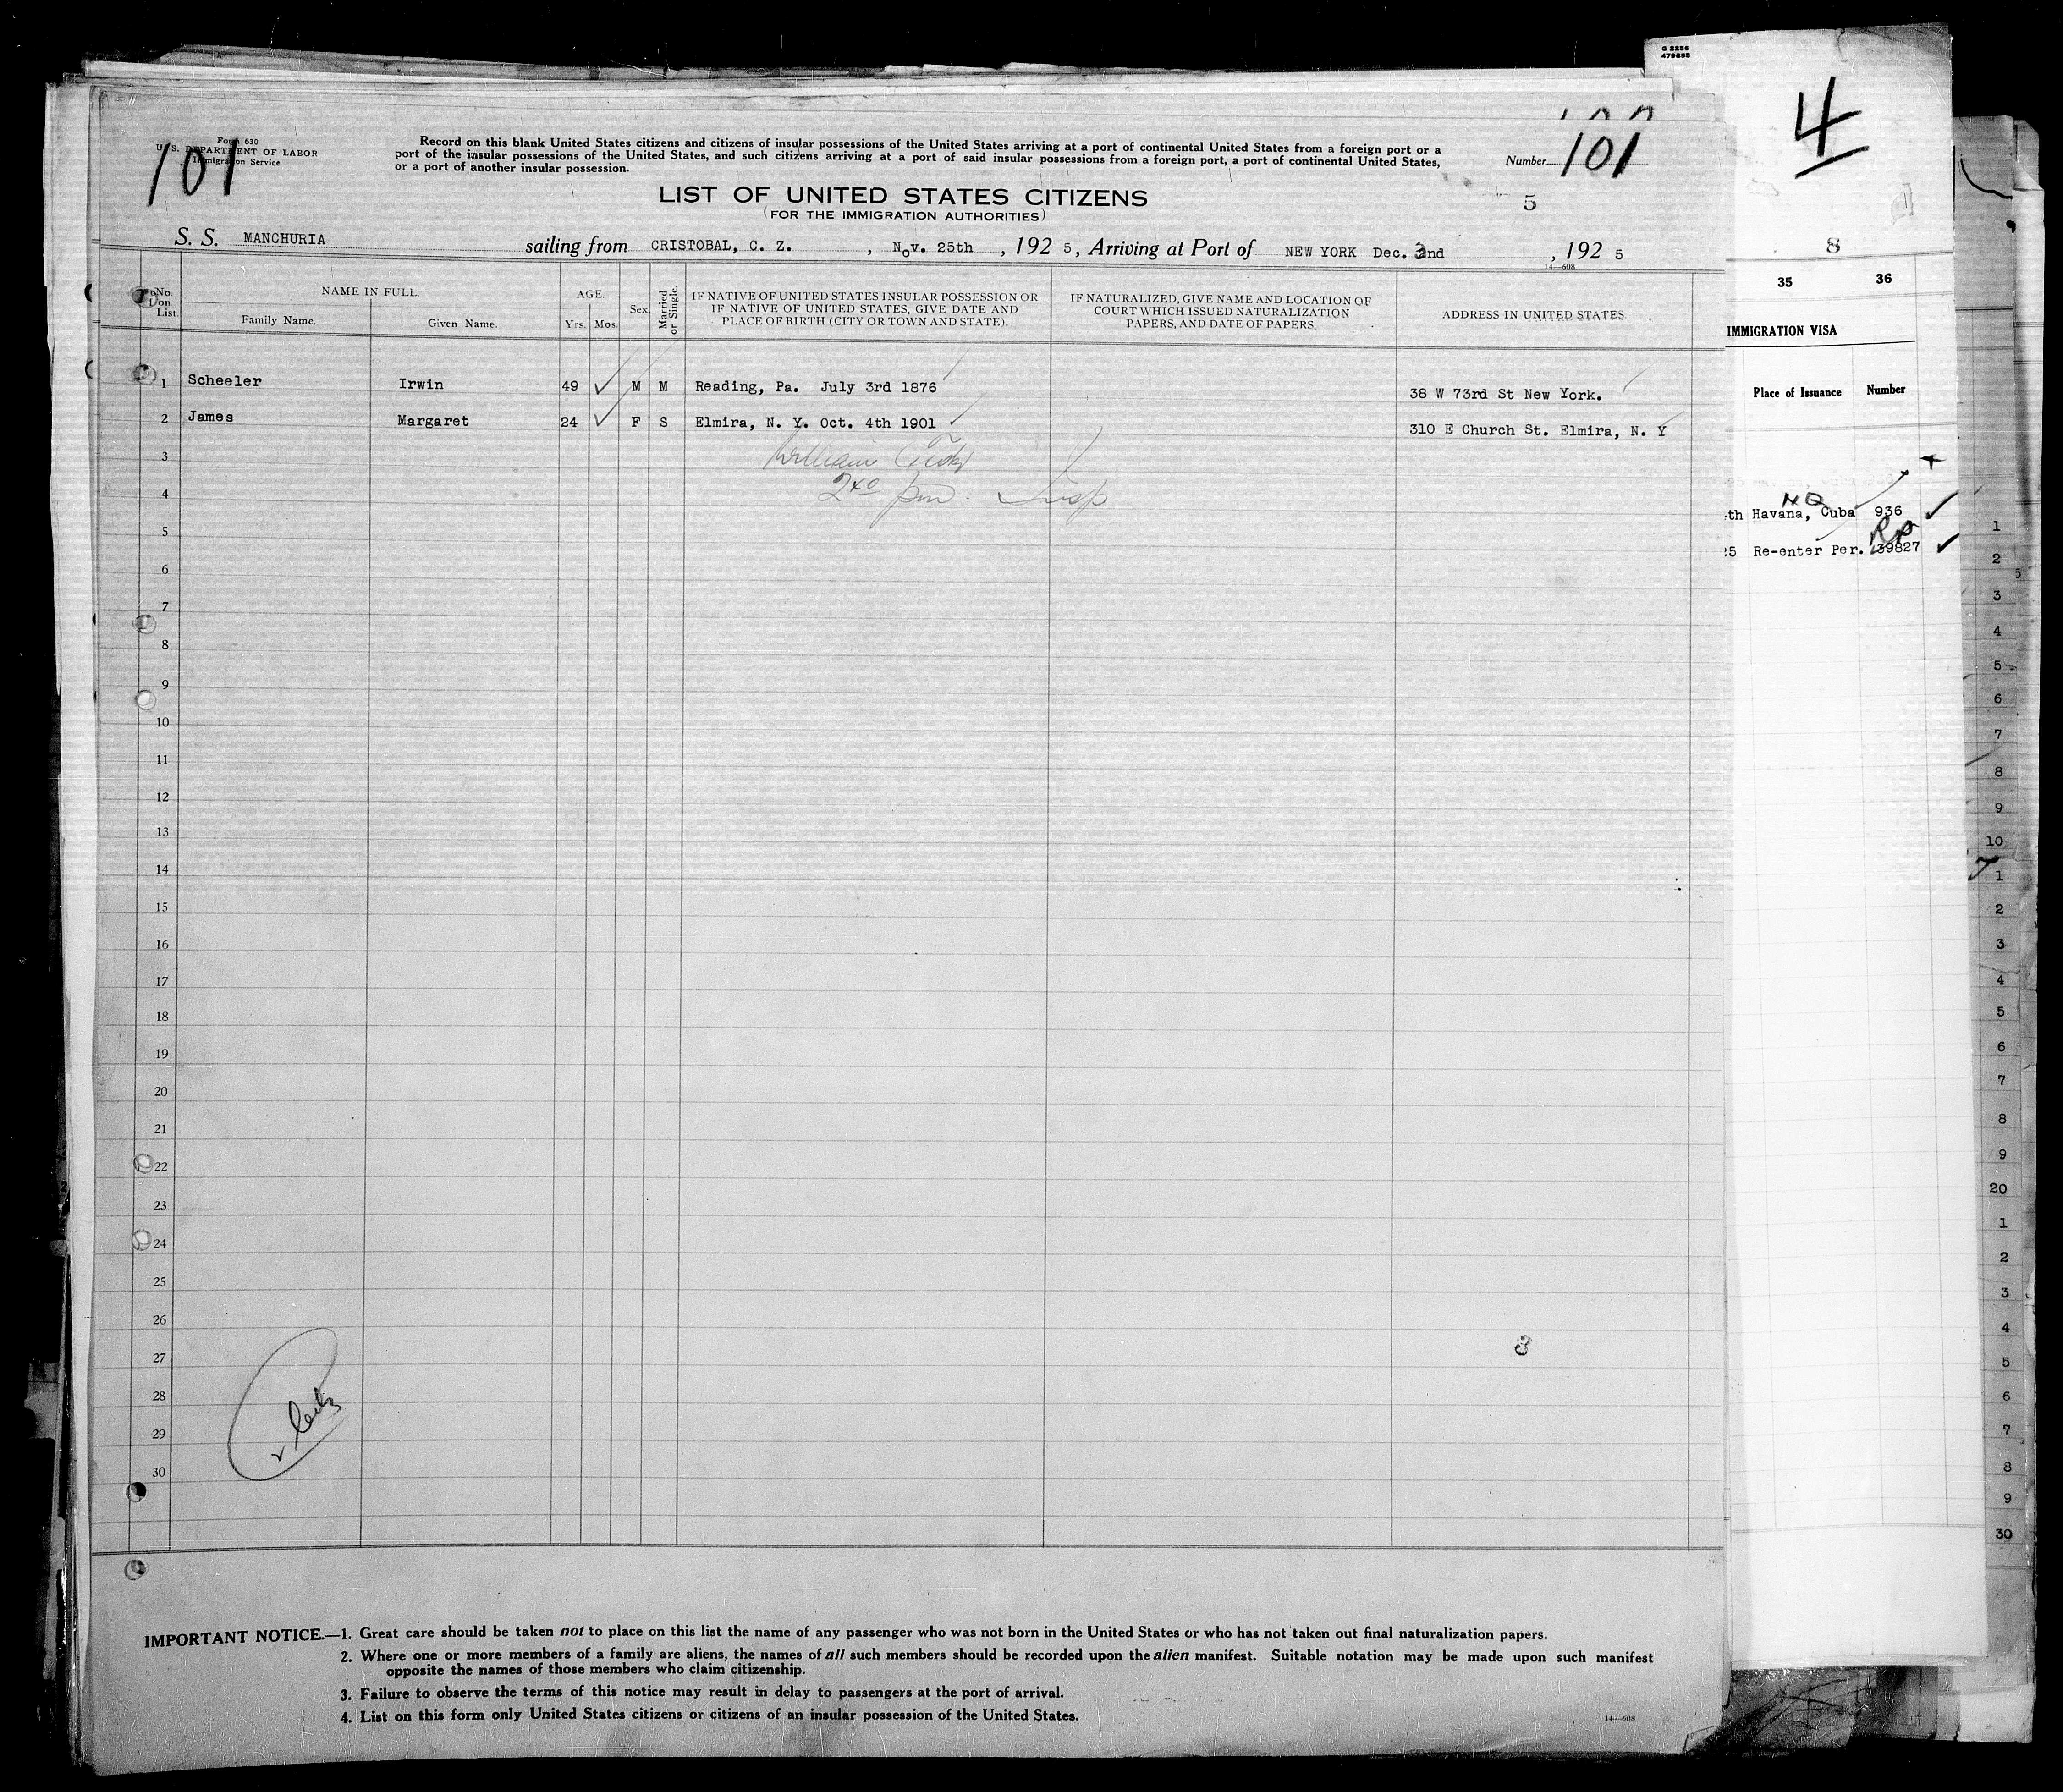 G 2256
479868
4
Form 630
U. S. DEPARTMENT OF LABOR
Immigration Service
101
Record on this blank United States citizens and citizens of insular possessions of the United States arriving at a port of continental United States from a foreign port or a
port of the insular possessions of the United States, and such citizens arriving at a port of said insular possessions from a foreign port, a port of continental United States,
or a port of another insular possession.
Number 101
LIST OF UNITED STATES CITIZENS
(FOR THE IMMIGRATION AUTHORITIES)
5
S. S. MANCHURIA sailing from CRISTOBAL, C. Z. , Nov. 25th , 192 5, Arriving at Port of NEW YORK Dec. 2nd , 192 5
14—608
No. on List.
NAME IN FULL.
Family Name. Given Name.
AGE.
Yrs. Mos.
Sex.
Married or Single.
IF NATIVE OF UNITED STATES INSULAR POSSESSION OR
IF NATIVE OF UNITED STATES, GIVE DATE AND
PLACE OF BIRTH (CITY OR TOWN AND STATE).
IF NATURALIZED, GIVE NAME AND LOCATION OF
COURT WHICH ISSUED NATURALIZATION
PAPERS, AND DATE OF PAPERS.
ADDRESS IN UNITED STATES.
1 Scheeler Irwin 49 ✓ M M Reading, Pa. July 3rd 1876 38 W 73rd St New York.
2 James Margaret 24 ✓ F S Elmira, N. Y. Oct. 4th 1901 310 E Church St. Elmira, N. Y
3 William
4 Insp
5
6
7
8
9
10
11
12
13
14
15
16
17
18
19
20
21
22
23
24
25
26
27
28
29
30
3
IMPORTANT NOTICE.—1. Great care should be taken not to place on this list the name of any passenger who was not born in the United States or who has not taken out final naturalization papers.
2. Where one or more members of a family are aliens, the names of all such members should be recorded upon the alien manifest. Suitable notation may be made upon such manifest
opposite the names of those members who claim citizenship.
3. Failure to observe the terms of this notice may result in delay to passengers at the port of arrival.
4. List on this form only United States citizens or citizens of an insular possession of the United States.
14—608
8
35 36
IMMIGRATION VISA
Place of Issuance Number
NQ
th Havana, Cuba 936
RP
25 Re-enter Per. 39827
1
2
3
4
5
6
7
8
9
10
1
2
3
4
5
6
7
8
9
20
1
2
3
4
5
6
7
8
9
30